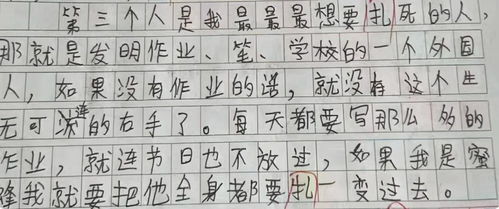 第三个人是我最最最想要扎死的人,
那就是发明作业、笔、学校的一个外国
人,如果没有作业的话,就没有这个生
无可恋的右手了。每天都要写那么多的
作业,就连节日也不放过,如果我是蜜
蜂我就要把他全身都要扎一变过去。